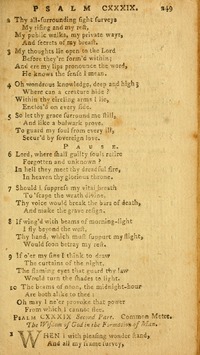 PSALM CXXXIX. 249
2 Thy all-surrounding sight surveys
My rising and my rest,
My public walks, my private ways,
And secrets of my breast.
3 My thoughts lie open to the Lord
Before they're form'd within;
And ere my lips pronounce the word,
He knows the sense I mean.
4 Oh wondrous knowledge, deep and high!
Where can a creature hide?
Within thy circling arms I lie,
Enclos'd on every side.
5 So let thy grace surround me still,
And like a bulwark prove,
To guard my soul from every ill,
Secur'd by sovereign love.
PAUSE.
6 Lord, where shall guilty souls retire
Forgotten and unknown?
In hell they meet thy dreadful fire,
In heaven thy glorious throne.
7 Should I suppress my vital breath
To 'scape the wrath divine,
Thy voice would break the bars of death,
And make the grave resign.
8 If wing'd with beams of morning-light
I fly beyond the west,
Thy hand, which must support my flight,
Would soon betray my rest.
9 If o'er my sins I think to draw
The curtains of the night,
The flaming eyes that guard thy law
Would turn the shades to light.
10 The beams of noon, the midnight-hour
Are both alike to thee:
Oh may I ne'er provoke that power
From which I cannot flee.
PSALM CXXXIX. Second Part. Common Metre.
The Wisdom of God in the Formation of Man.
1 WHEN I with pleasing wonder stand,
And all my frame survey,